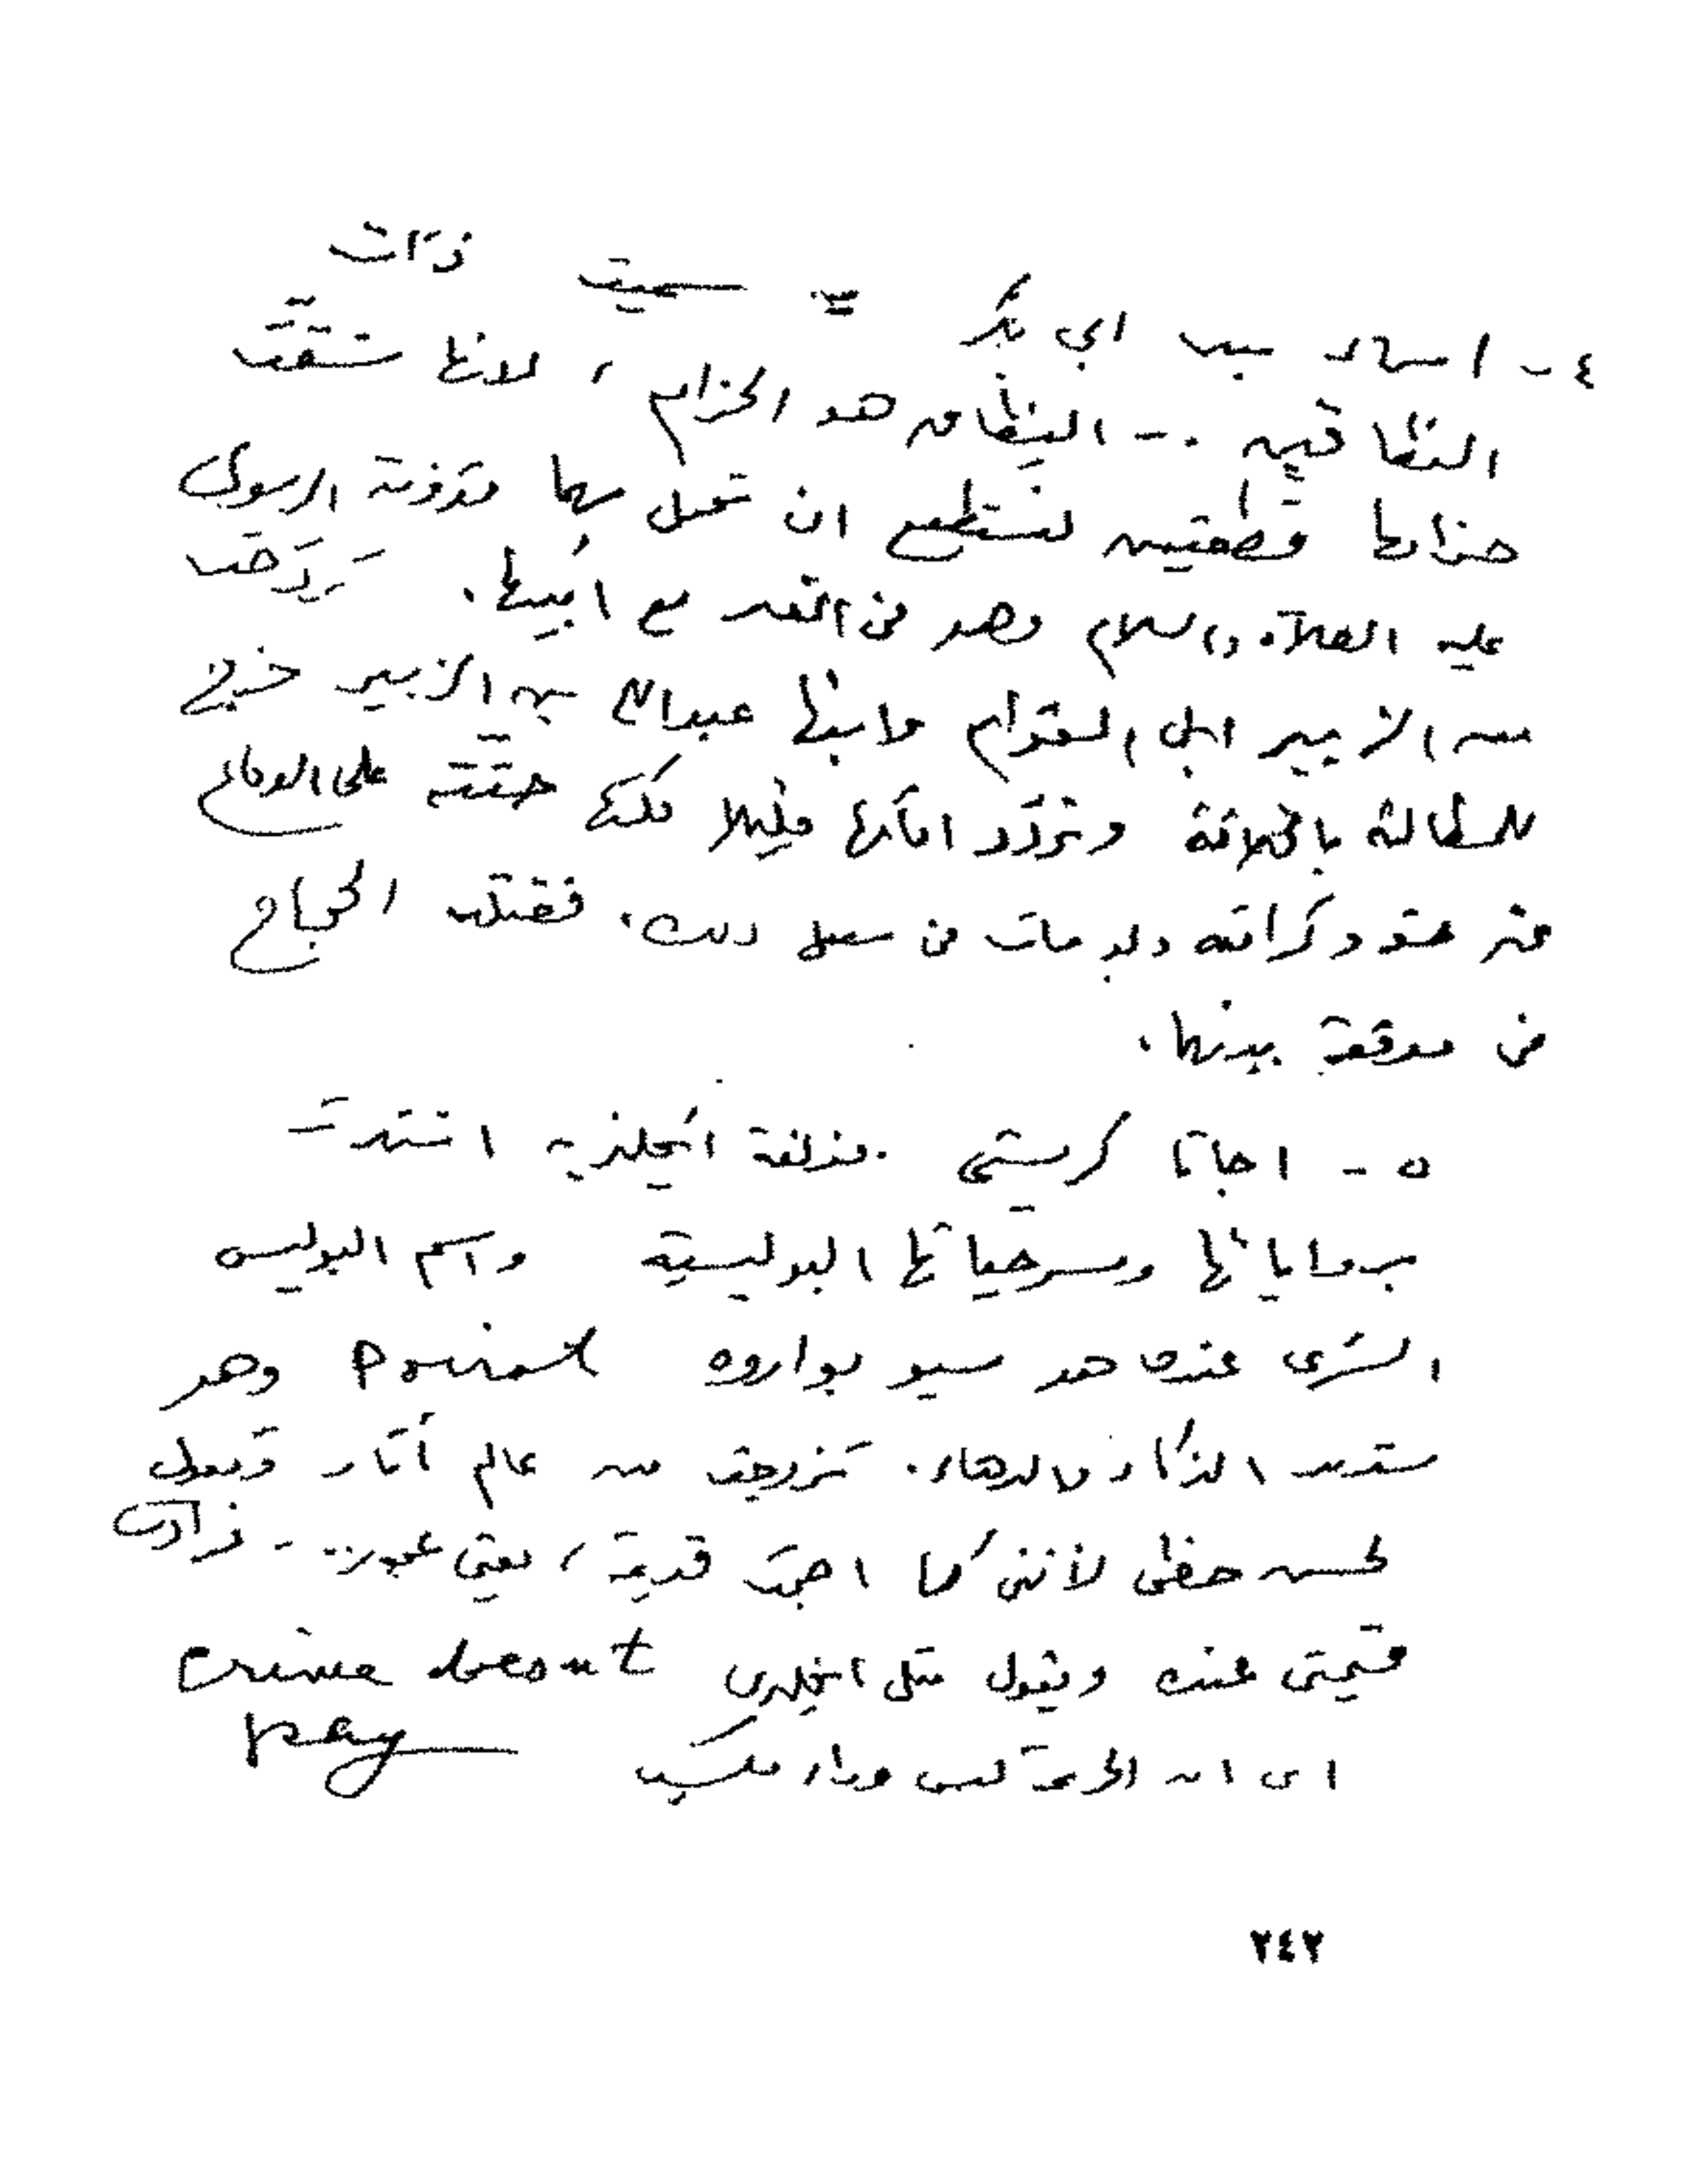 ٤ - اسماء بنت ابي بكر سميت ذات
النطاقين .- النطاق هو الحزام ، لانها شقت
حزامها قطعتين لتستطيع ان تحمل بهما مؤونة الرسول
عليه الصلاة والسلام وهو في الغار مع ابيها . تزوجت
من الزبير ابن العوام وابنها عبدالله بن الزبير خرج
للمطالبة بالخلافة وتردد امامها قليلا لكنها حثته على الدفاع
عن حقه وكرامته ولو مات في سبيل ذلك . فقتله الحجاج
في موقعة بينهما .
٥ - اجاثا كريستي . مؤلفة انجليزية اشتهرت
برواياتها ومسرحياتها البوليسية واسم البوليس
السري عندها هو مسيو بواروه Poirot وهو
شديد الذكاء والدهاء . تزوجت من عالم آثار وتقول
لحسن حظي لأنني كلما اصبحت قديمة ، يعني عجوز .. زادت
قيمتي عنده ويقول مثل انجليزي crime doesn't
pay
اي ان الجريمة ليس وراءها مكسب
٢٤٢